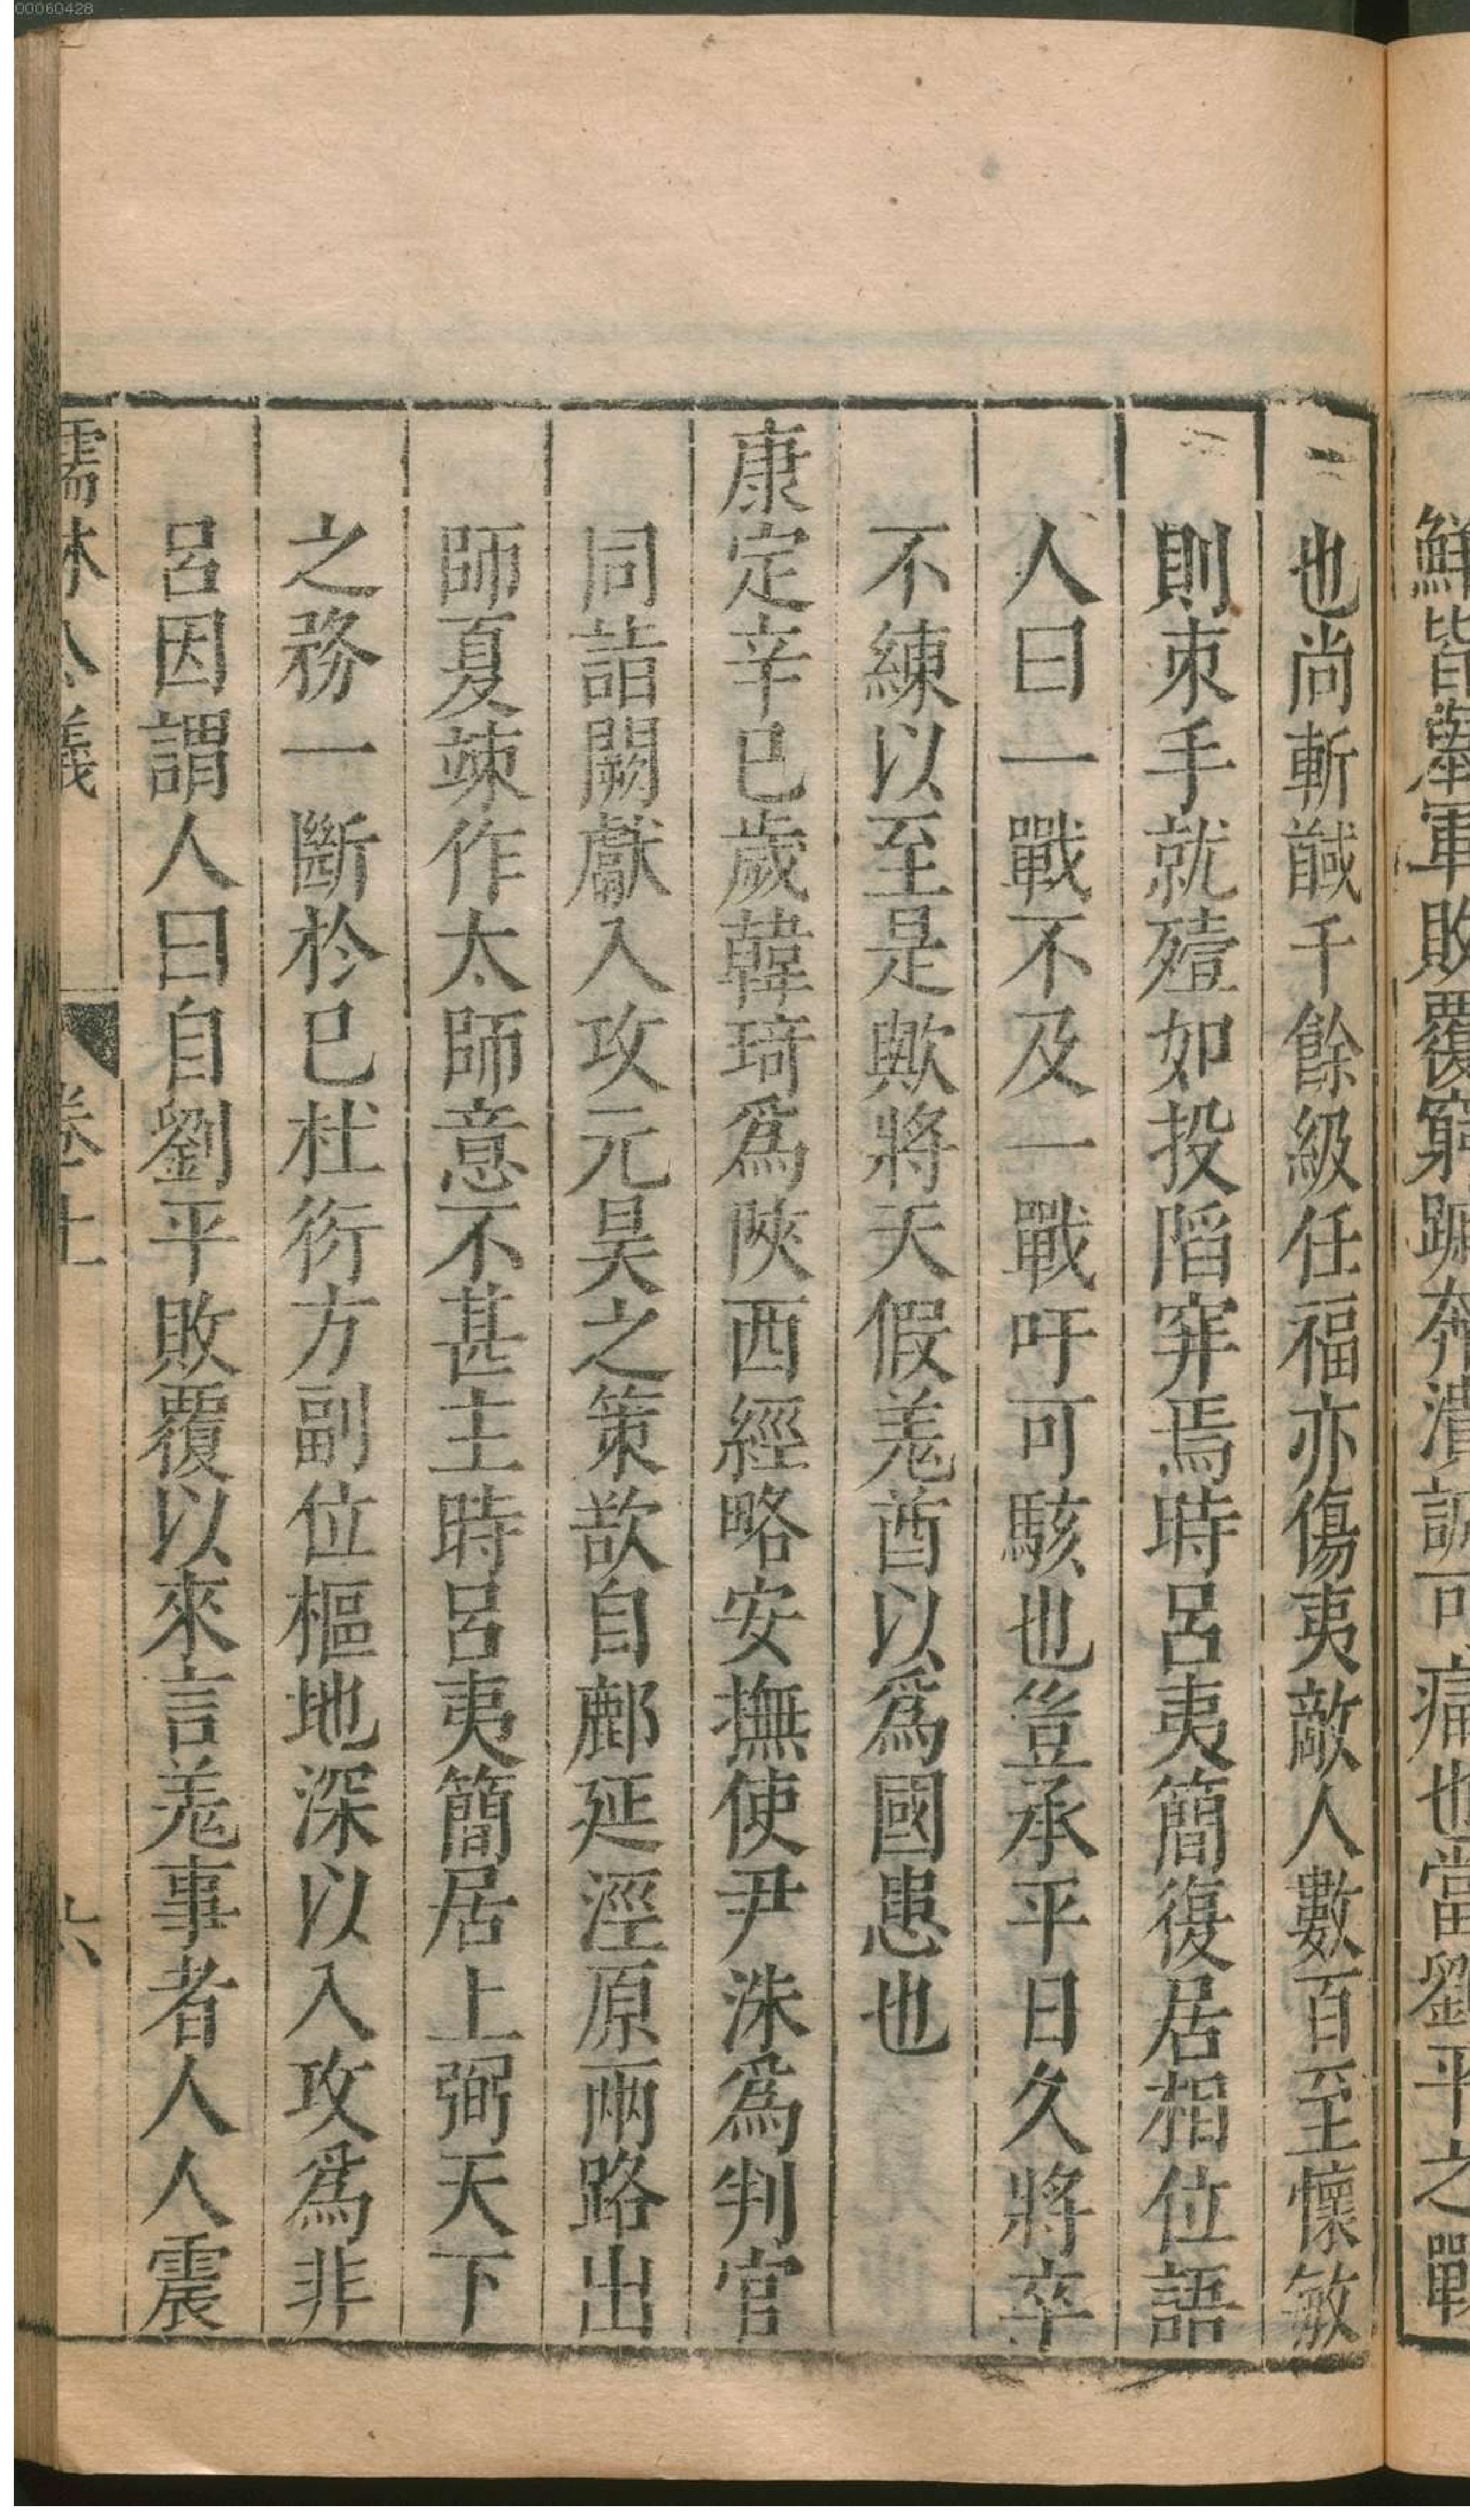 鮮皆舉軍敗覆窮蹴奔潰誠可痛也當劉平之戰
也尚斬馘千餘級任福亦傷夷敵人數百至懷敏
則束手就殪如投陷穽焉時呂夷簡復居相位語
人曰一戰不及一戰吁可駭也豈承平日久將卒
不練以至是歟將天假羗酋以爲國患也
康定辛巳歲韓琦爲陝西經略安撫使尹洙爲判官
同詣闕獻入攻元昊之策欲自鄜延涇原兩路出
師夏竦作太師意不甚主時呂夷簡居上弼天下
之務一斷於巳杜衍方副位樞地深以入攻爲非
呂因謂人曰自劉平敗覆以來言羗事者人人震
儒林公議 卷上 六
00060428